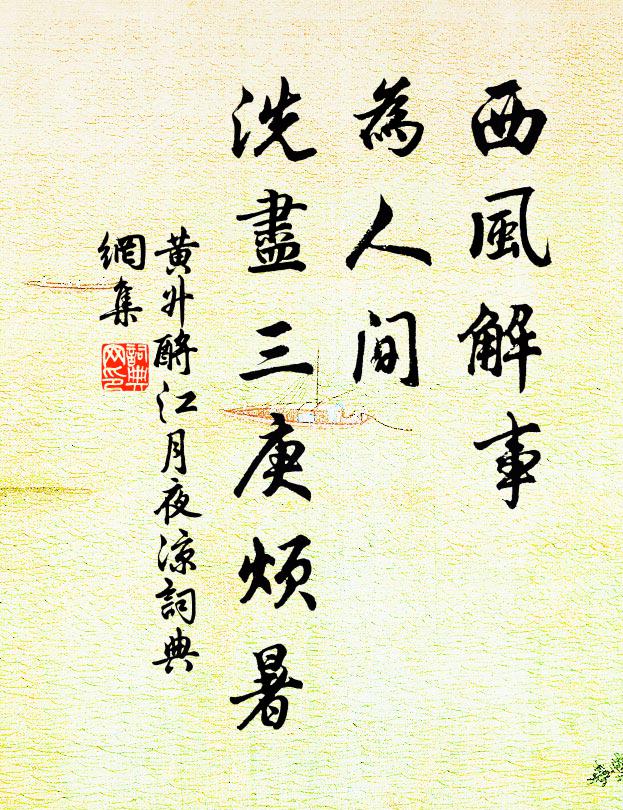 西風解事
為人間
洗盡三庚煩暑
黄升酹江月夜涼詞典
網集
詞典
网印